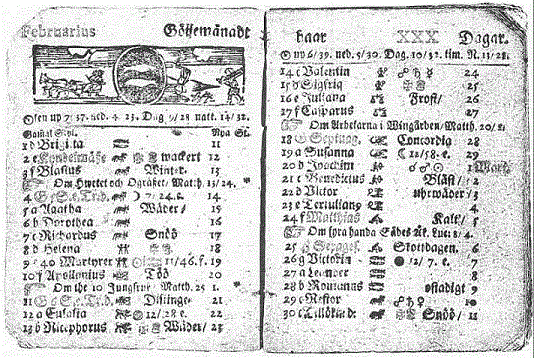 Februarius Göijemånadt
⊙sen up 7/37. ned. 4/23. Dag 9/28 natt. 14/32.
Gamal Styl. Nya St.
1 d Brigita 11
2 e Kyndelmässe wackert 12
3 f Blasius Winter. 13
Om Hwetet och Ogräset/ Matth. 13/24.
4 G 5. e. Tr. D. ☽ 7/24. e. 14
5 a Agatha Wäder/ 15
6 b Dorothea 16
7 c Richardus Snöö 17
8 d Helena 18
9 e 40 Martyrer 11/46. f. 19
10 f Apollonius Töö 20
Om the 10 Jungfrur. Matth. 25 1.
11 G Disting. 21
12 a Eulalia 12/28 e. 22
13 b Nicephorus Wäder/ 23
haar XXX Dagar.
⊙ up 6/39. ned. 5/30. Dag. 10/32. tim. N. 13/28.
14 c Valentin ☍ ♄ ☿ 24
15 d Sigfrid 25
16 e Juliana Frost/ 26
17 f Casparus 27
Om Arbetarna i Wingården/ Matth. 20/
18 G Septuag. Concordia 28
19 a Susanna ☾ 12/58. e. 29
20 Joachim ☌ ♂ ⊙ 1 Mart
21 c Benedictus Bläst/ 2
22 d Victor uhrwäder/ 3
23 e Tertuliang 4
24 f Matthias Kalt/ 5
Om fyra handa Sädes Åk. Luc. 8/4.
25 G Sexages. Skottdagen. 6
26 g Victorin ● 12/7. e. 7
27 a Leander 8
28 b Romanus ostadigt 9
29 c Nestor ☍ ♄ ♀ 10
30 c Snöö/ 11